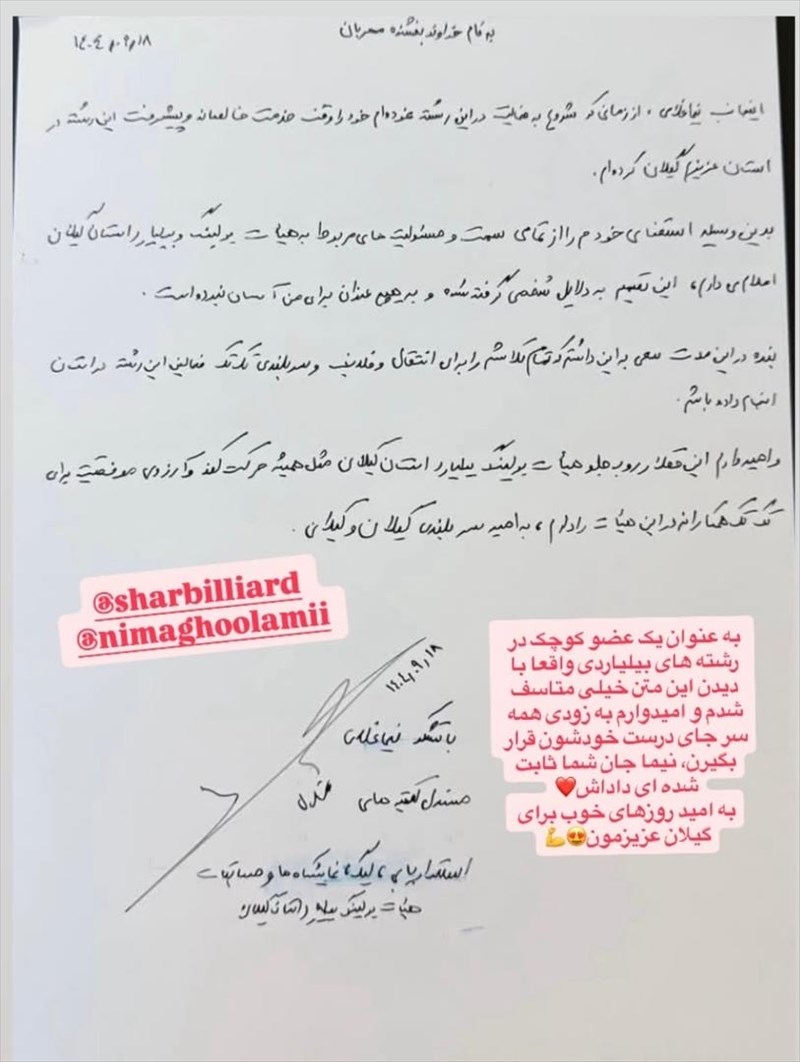 به نام خداوند بخشنده مهربان
۱۴۰۴/۰۹/۱۸
اینجانب نیما غلامی، از زمانی که شروع به فعالیت در این رشته نموده‌ام خود را وقف خدمت خالصانه و پیشرفت این رشته در
استان عزیزم گیلان کرده‌ام.
بدین وسیله استعفای خودم را از تمامی سمت و مسئولیت های مربوط به هیات بولینگ و بیلیارد استان گیلان
اعلام می دارم، این تصمیم به دلایل شخصی گرفته شده و به هیچ عنوان برای من آسان نبوده است.
بنده در این مدت سعی بر این داشته که تمام تلاشم را برای انتقال و سربلندی تک تک فعالین این رشته در استان
انجام داده باشم.
و امیدوارم این قطار رو به جلو هیات بولینگ بیلیارد استان گیلان مثل همیشه حرکت کند و آرزوی موفقیت برای
تک تک همکارانم در این هیات را دارم، به امید سربلندی گیلان و گیلانی.
@sharbilliard
@nimaghoolamii
۱۴۰۴/۰۹/۱۸
با تشکر نیما غلامی
مسئول کمیته های
استعدادیابی، لیگ، نمایشگاه ها و مسابقات
هیات بولینگ بیلیارد استان گیلان
به عنوان یک عضو کوچک در
رشته های بیلیاردی واقعا با
دیدن این متن خیلی متاسف
شدم و امیدوارم به زودی همه
سر جای درست خودشون قرار
بگیرن، نیما جان شما ثابت
شده ای داداش❤️
به امید روزهای خوب برای
گیلان عزیزمون😍💪